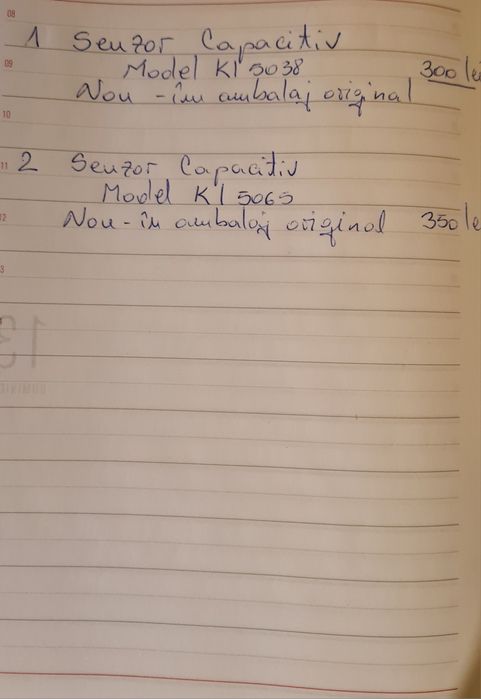 08
1 Senzor Capacitiv
09
Model KI 5038 300 lei
Nou - în ambalaj original
10
11
2 Senzor Capacitiv
Model KI 5065
12
Nou - în ambalaj original 350 lei
13